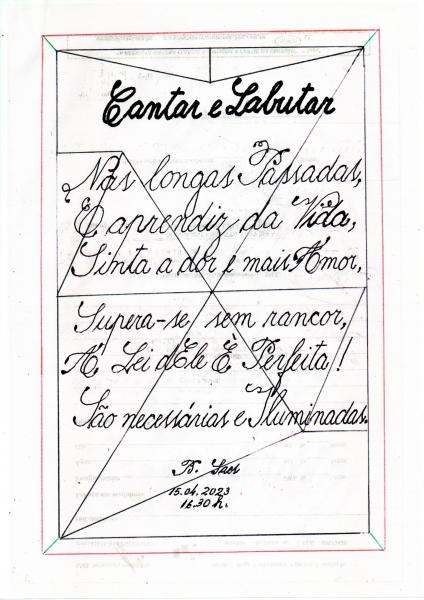 Cantar e Labutar
Nas longas Passadas,
É aprendiz da Vida,
Sinta a dor e mais Amor,
Supera-se sem rancor,
A Lei dEle É Perfeita!
São necessárias e Iluminadas.
B. Saes
15.04.2023
16.30 h.